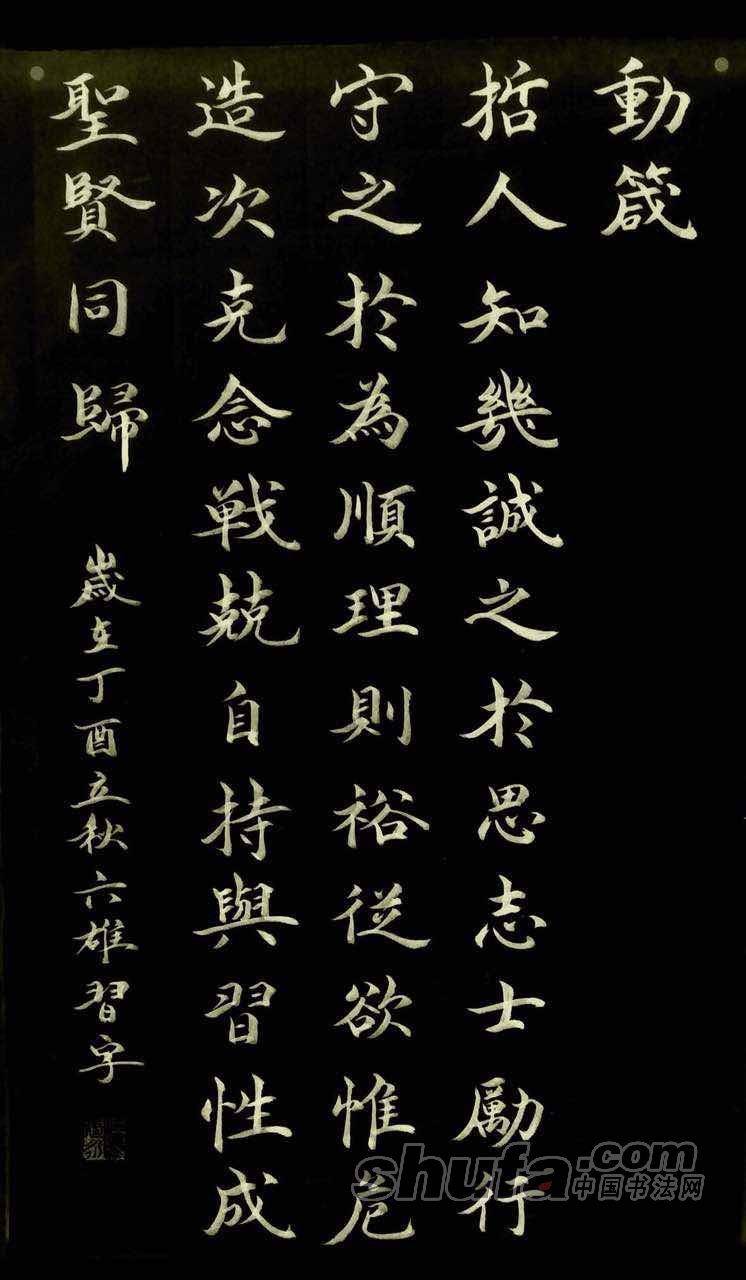 動箴
哲人知幾誠之於思志士勵行
守之於為順理則裕從欲惟危
造次克念戰兢自持與習性成
聖賢同歸
歲在丁酉立秋六雄習字
shufa.com
中国书法网